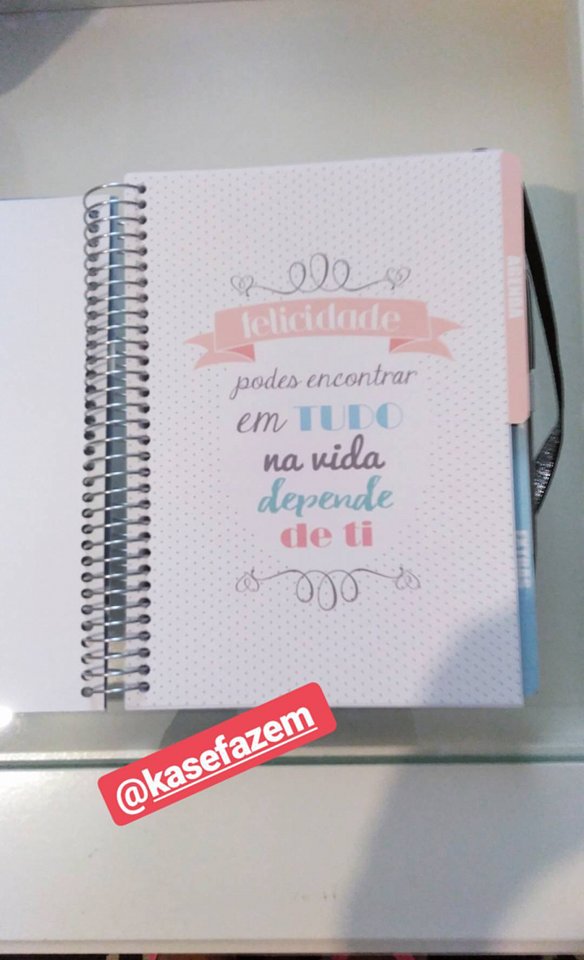 felicidade
podes encontrar
em TUDO
na vida
depende
de ti
AGENDA
@kasefazem